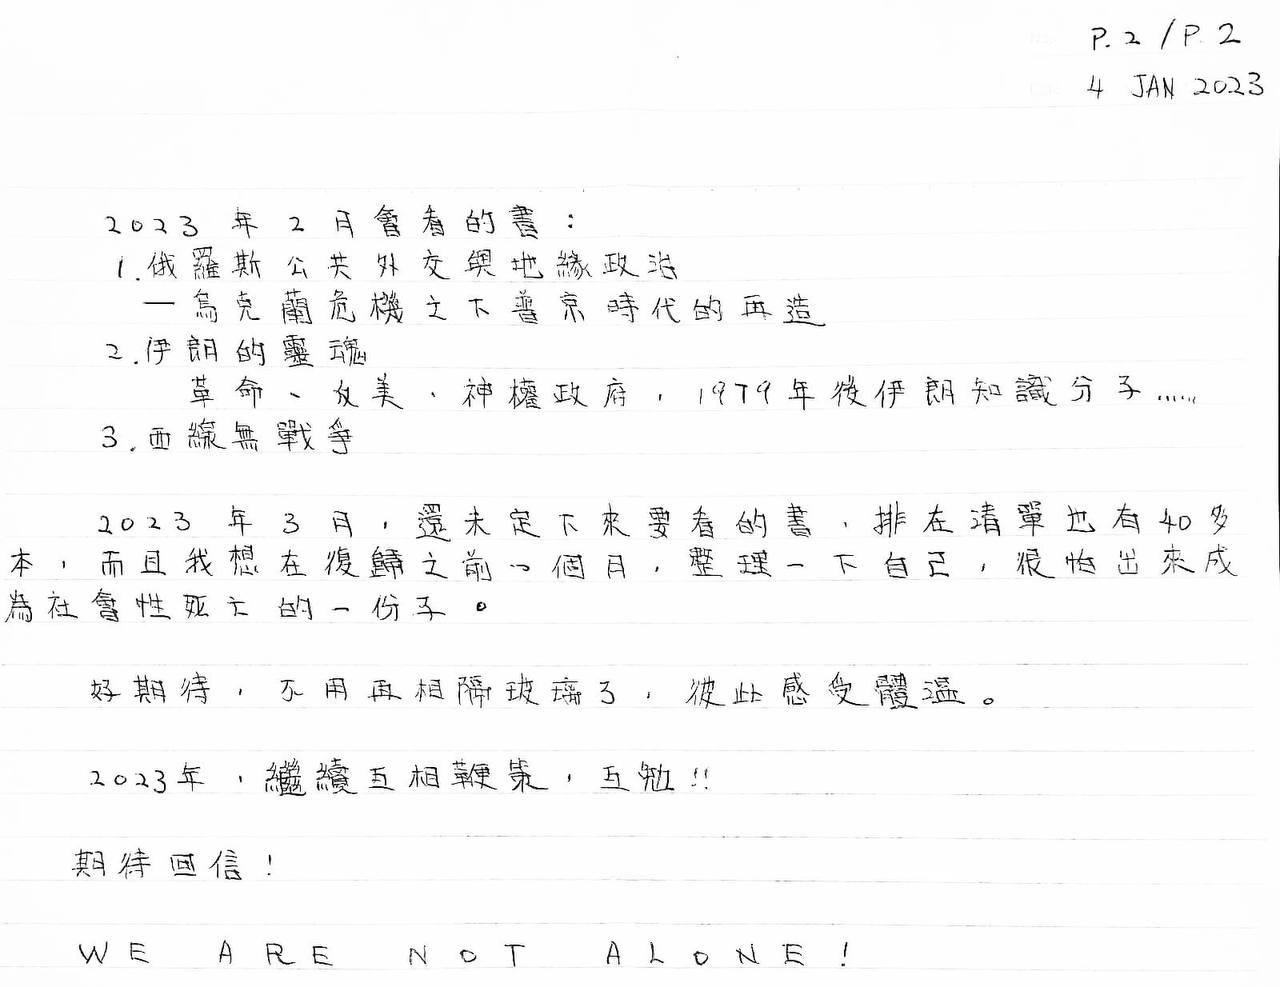 P.2/P.2
4 JAN 2023
2023年2月會看的書：
1.俄羅斯公共外交與地緣政治
—烏克蘭危機之下普京時代的再造
2.伊朗的靈魂
革命、反美、神權政府，1979年後伊朗知識分子......
3.西線無戰爭
2023年3月，還未定下來要看的書，排在清單也有40多
本，而且我想在復歸之前一個月，整理一下自己，很怕出來成
為社會性死亡的一份子。
好期待，不用再相隔玻璃了，彼此感受體溫。
2023年，繼續互相鞭策，互勉!!
期待回信！
WE ARE NOT ALONE!